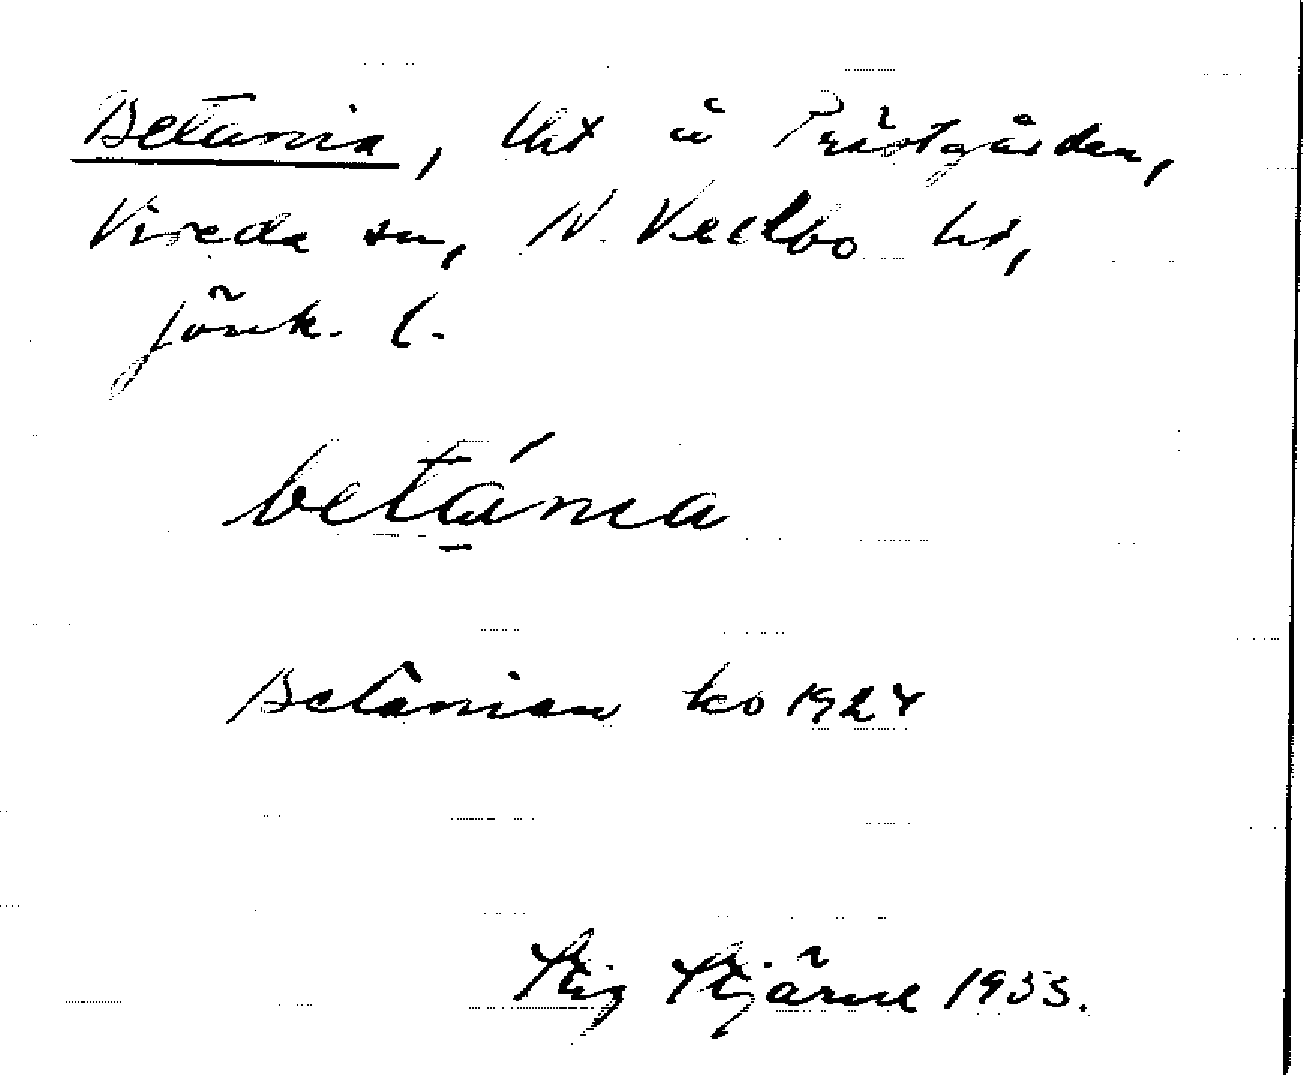 Betania, lht å Prästgården,
Vireda sn, N. Vedbo hd,
Jönk. l.
betánia
Betanian ko 1924
Stig Stjärne 1933.